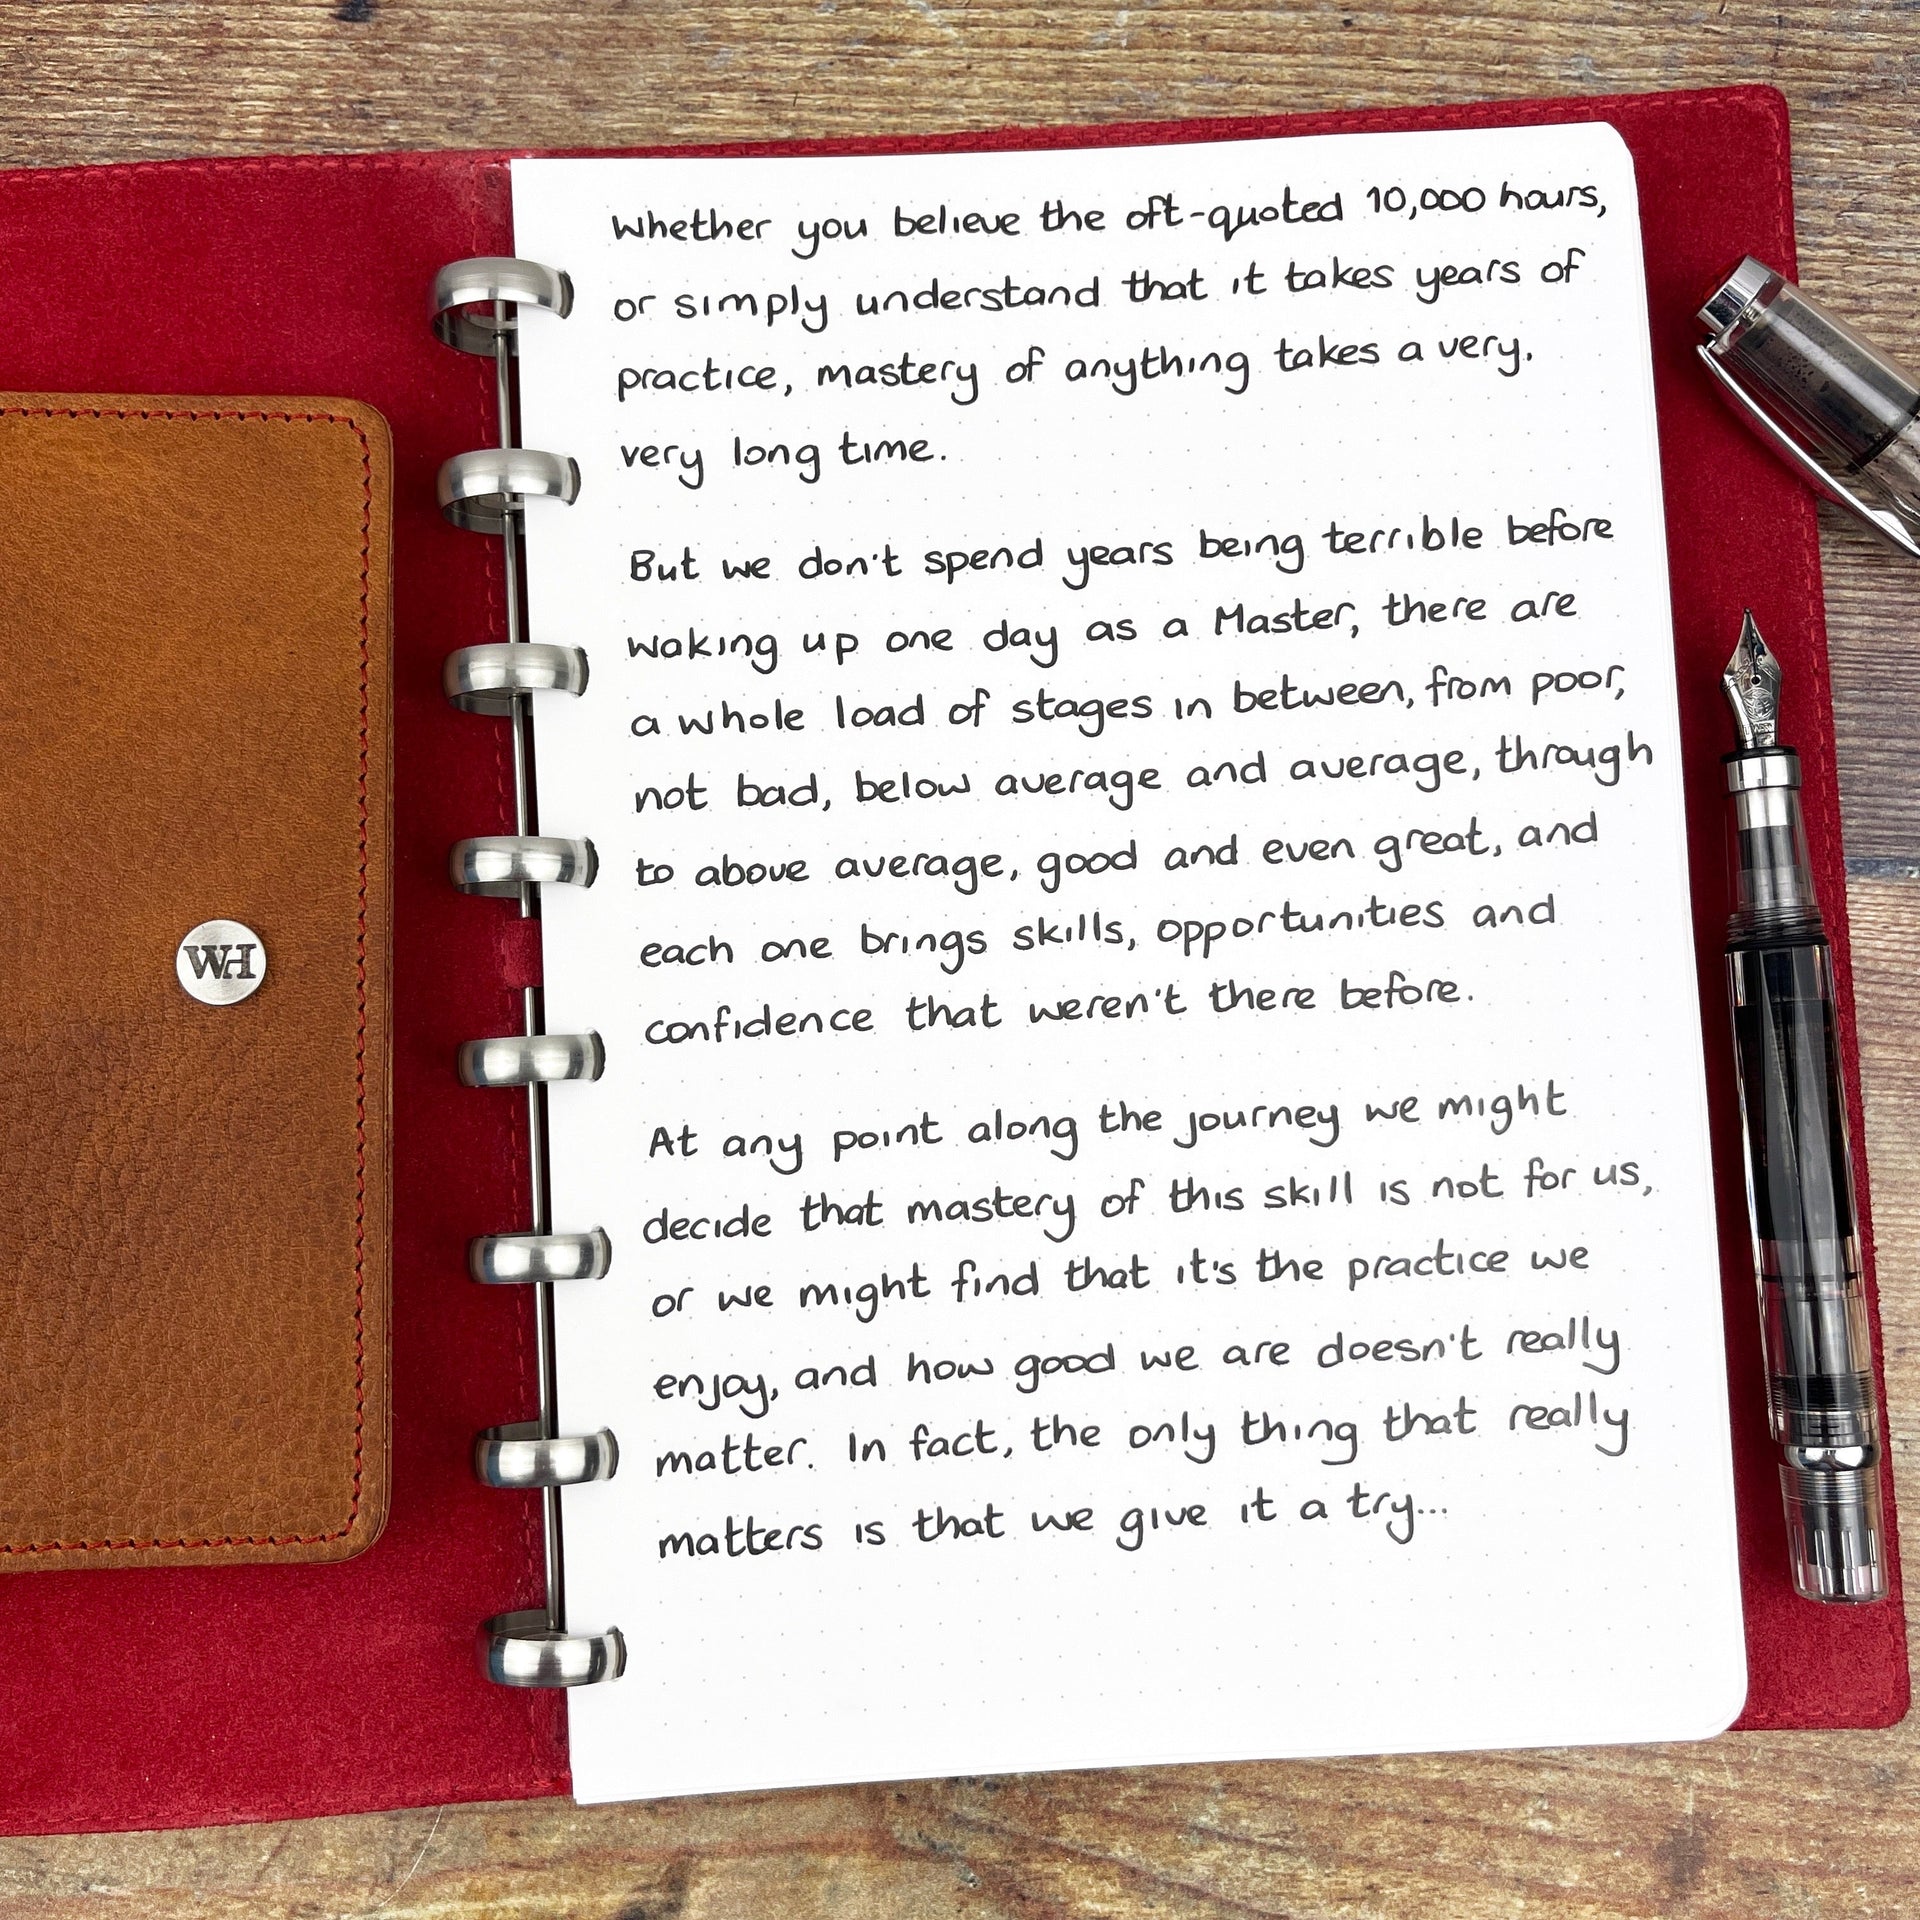 WH
Whether you believe the oft-quoted 10,000 hours,
or simply understand that it takes years of
practice, mastery of anything takes a very,
very long time.
But we don't spend years being terrible before
waking up one day as a Master, there are
a whole load of stages in between, from poor,
not bad, below average and average, through
to above average, good and even great, and
each one brings skills, opportunities and
confidence that weren't there before.
At any point along the journey we might
decide that mastery of this skill is not for us,
or we might find that it's the practice we
enjoy, and how good we are doesn't really
matter. In fact, the only thing that really
matters is that we give it a try...